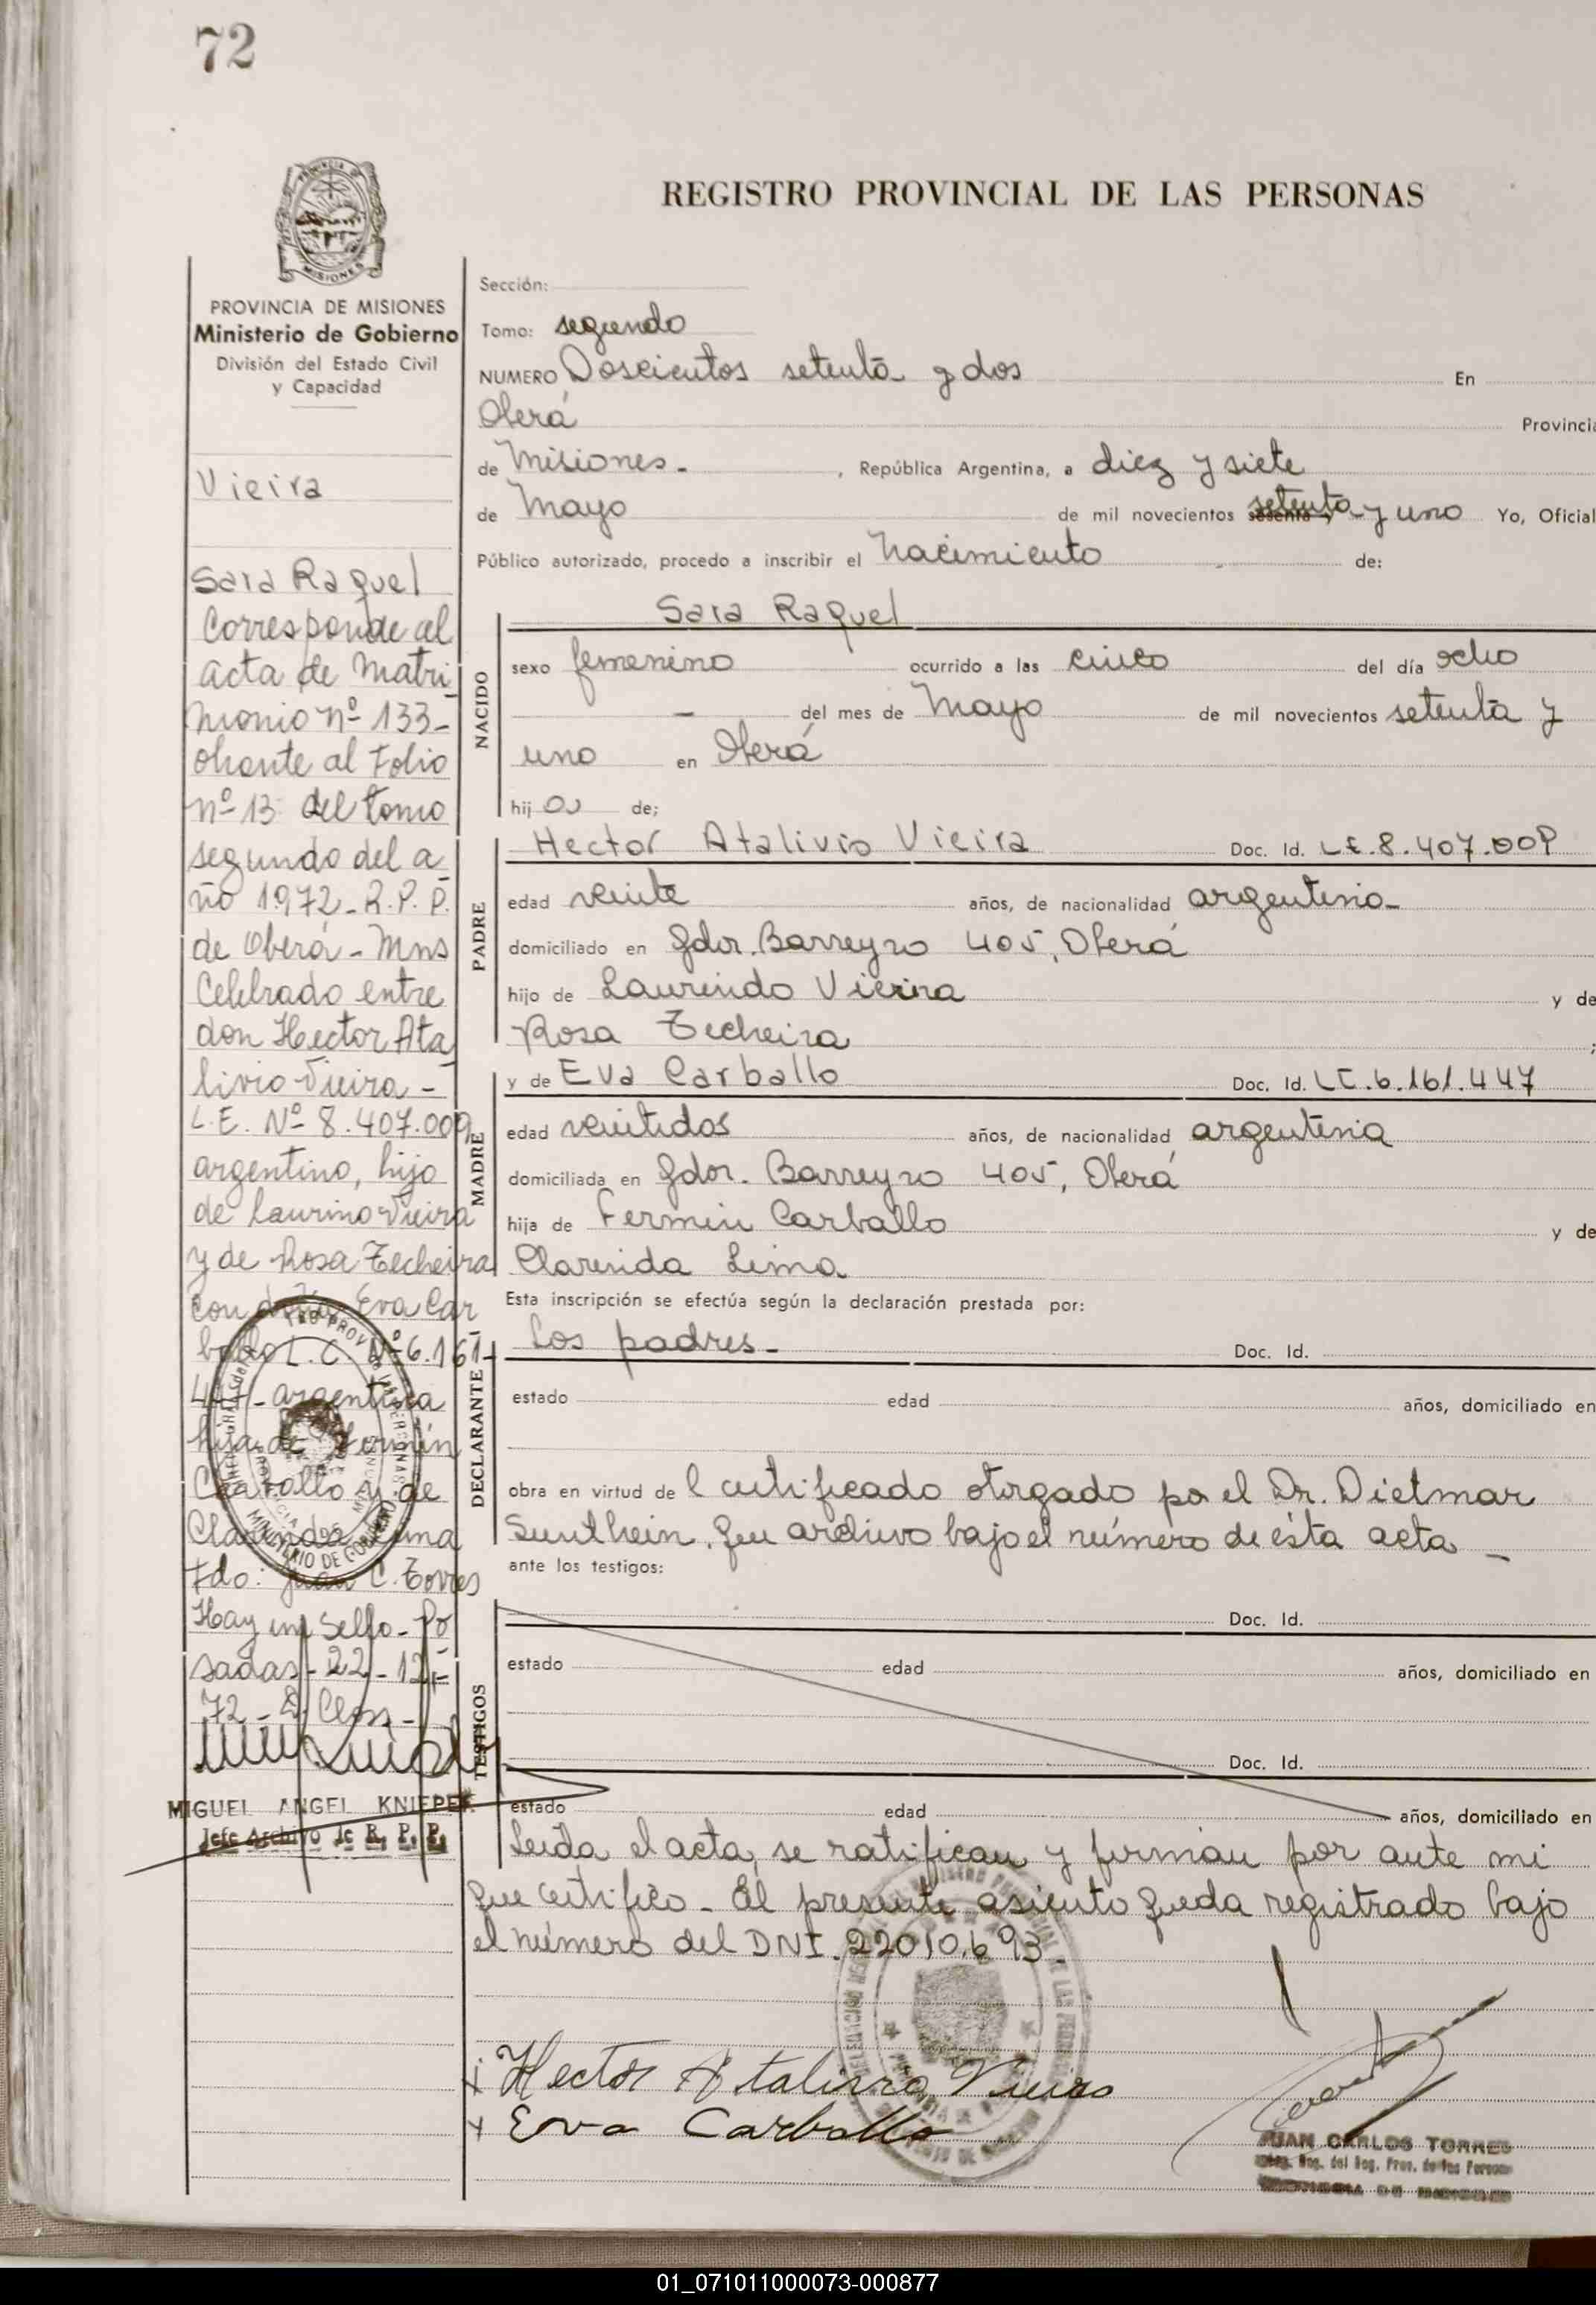 72
REGISTRO PROVINCIAL DE LAS PERSONAS
MISIONES
PROVINCIA DE MISIONES
Ministerio de Gobierno
División del Estado Civil
y Capacidad
Vieira
Sara Raquel
Corresponde al
acta de Matri
monio nº 133-
obrante al Folio
nº 13 del tomo
segundo del a
ño 1972 - R. P. P.
de Oberá - Mns
Celebrado entre
don Hector Ata
livio Vieira -
L.E. Nº 8.407.009
argentino, hijo
de Laurino Vieira
y de Rosa Techeira
con doña Eva Car
ballo L. C. Nº 6.161-
447 - argentina
hija de Fermín
Carballo y de
Clarinda Lima
Fdo: Juan C. Torres
Hay un sello - Po
sadas - 22 - 12 -
72 -
MIGUEL ANGEL KNIEPER
Jefe Archivo de R. P. P.
Sección:
Tomo: segundo
NUMERO Doscientos setenta y dos En
Oberá Provincia
de Misiones - , República Argentina, a diez y siete
de Mayo de mil novecientos sesenta y setenta y uno Yo, Oficial
Público autorizado, procedo a inscribir el nacimiento de:
NACIDO
Sara Raquel
sexo femenino ocurrido a las cinco del día ocho
— del mes de Mayo de mil novecientos setenta y
uno en Oberá
hij a de;
PADRE
Hector Atalivio Vieira Doc. Id. L.E. 8.407.009
edad veinte años, de nacionalidad argentino -
domiciliado en Gdor. Barreyro 405, Oberá
hijo de Laurindo Vieira y de
Rosa Techeira ;
MADRE
y de Eva Carballo Doc. Id. L.C. 6.161.447
edad veintidos años, de nacionalidad argentina
domiciliada en Gdor. Barreyro 405, Oberá
hija de Fermin Carballo y de
Clarinda Lima
Esta inscripción se efectúa según la declaración prestada por:
DECLARANTE
Los padres - Doc. Id.
estado edad años, domiciliado en
obra en virtud de l certificado otorgado por el Dr. Dietmar
Sunthein, que archivo bajo el número de ésta acta -
ante los testigos:
TESTIGOS
Doc. Id.
estado edad años, domiciliado en
Doc. Id.
estado edad años, domiciliado en
Leída el acta, se ratifican y firman por ante mi
que certifico - El presente asiento queda registrado bajo
el número del DNI. 22010.693
Hector Atalivio Vieira
Eva Carballo
JUAN CARLOS TORRES
01_071011000073-000877